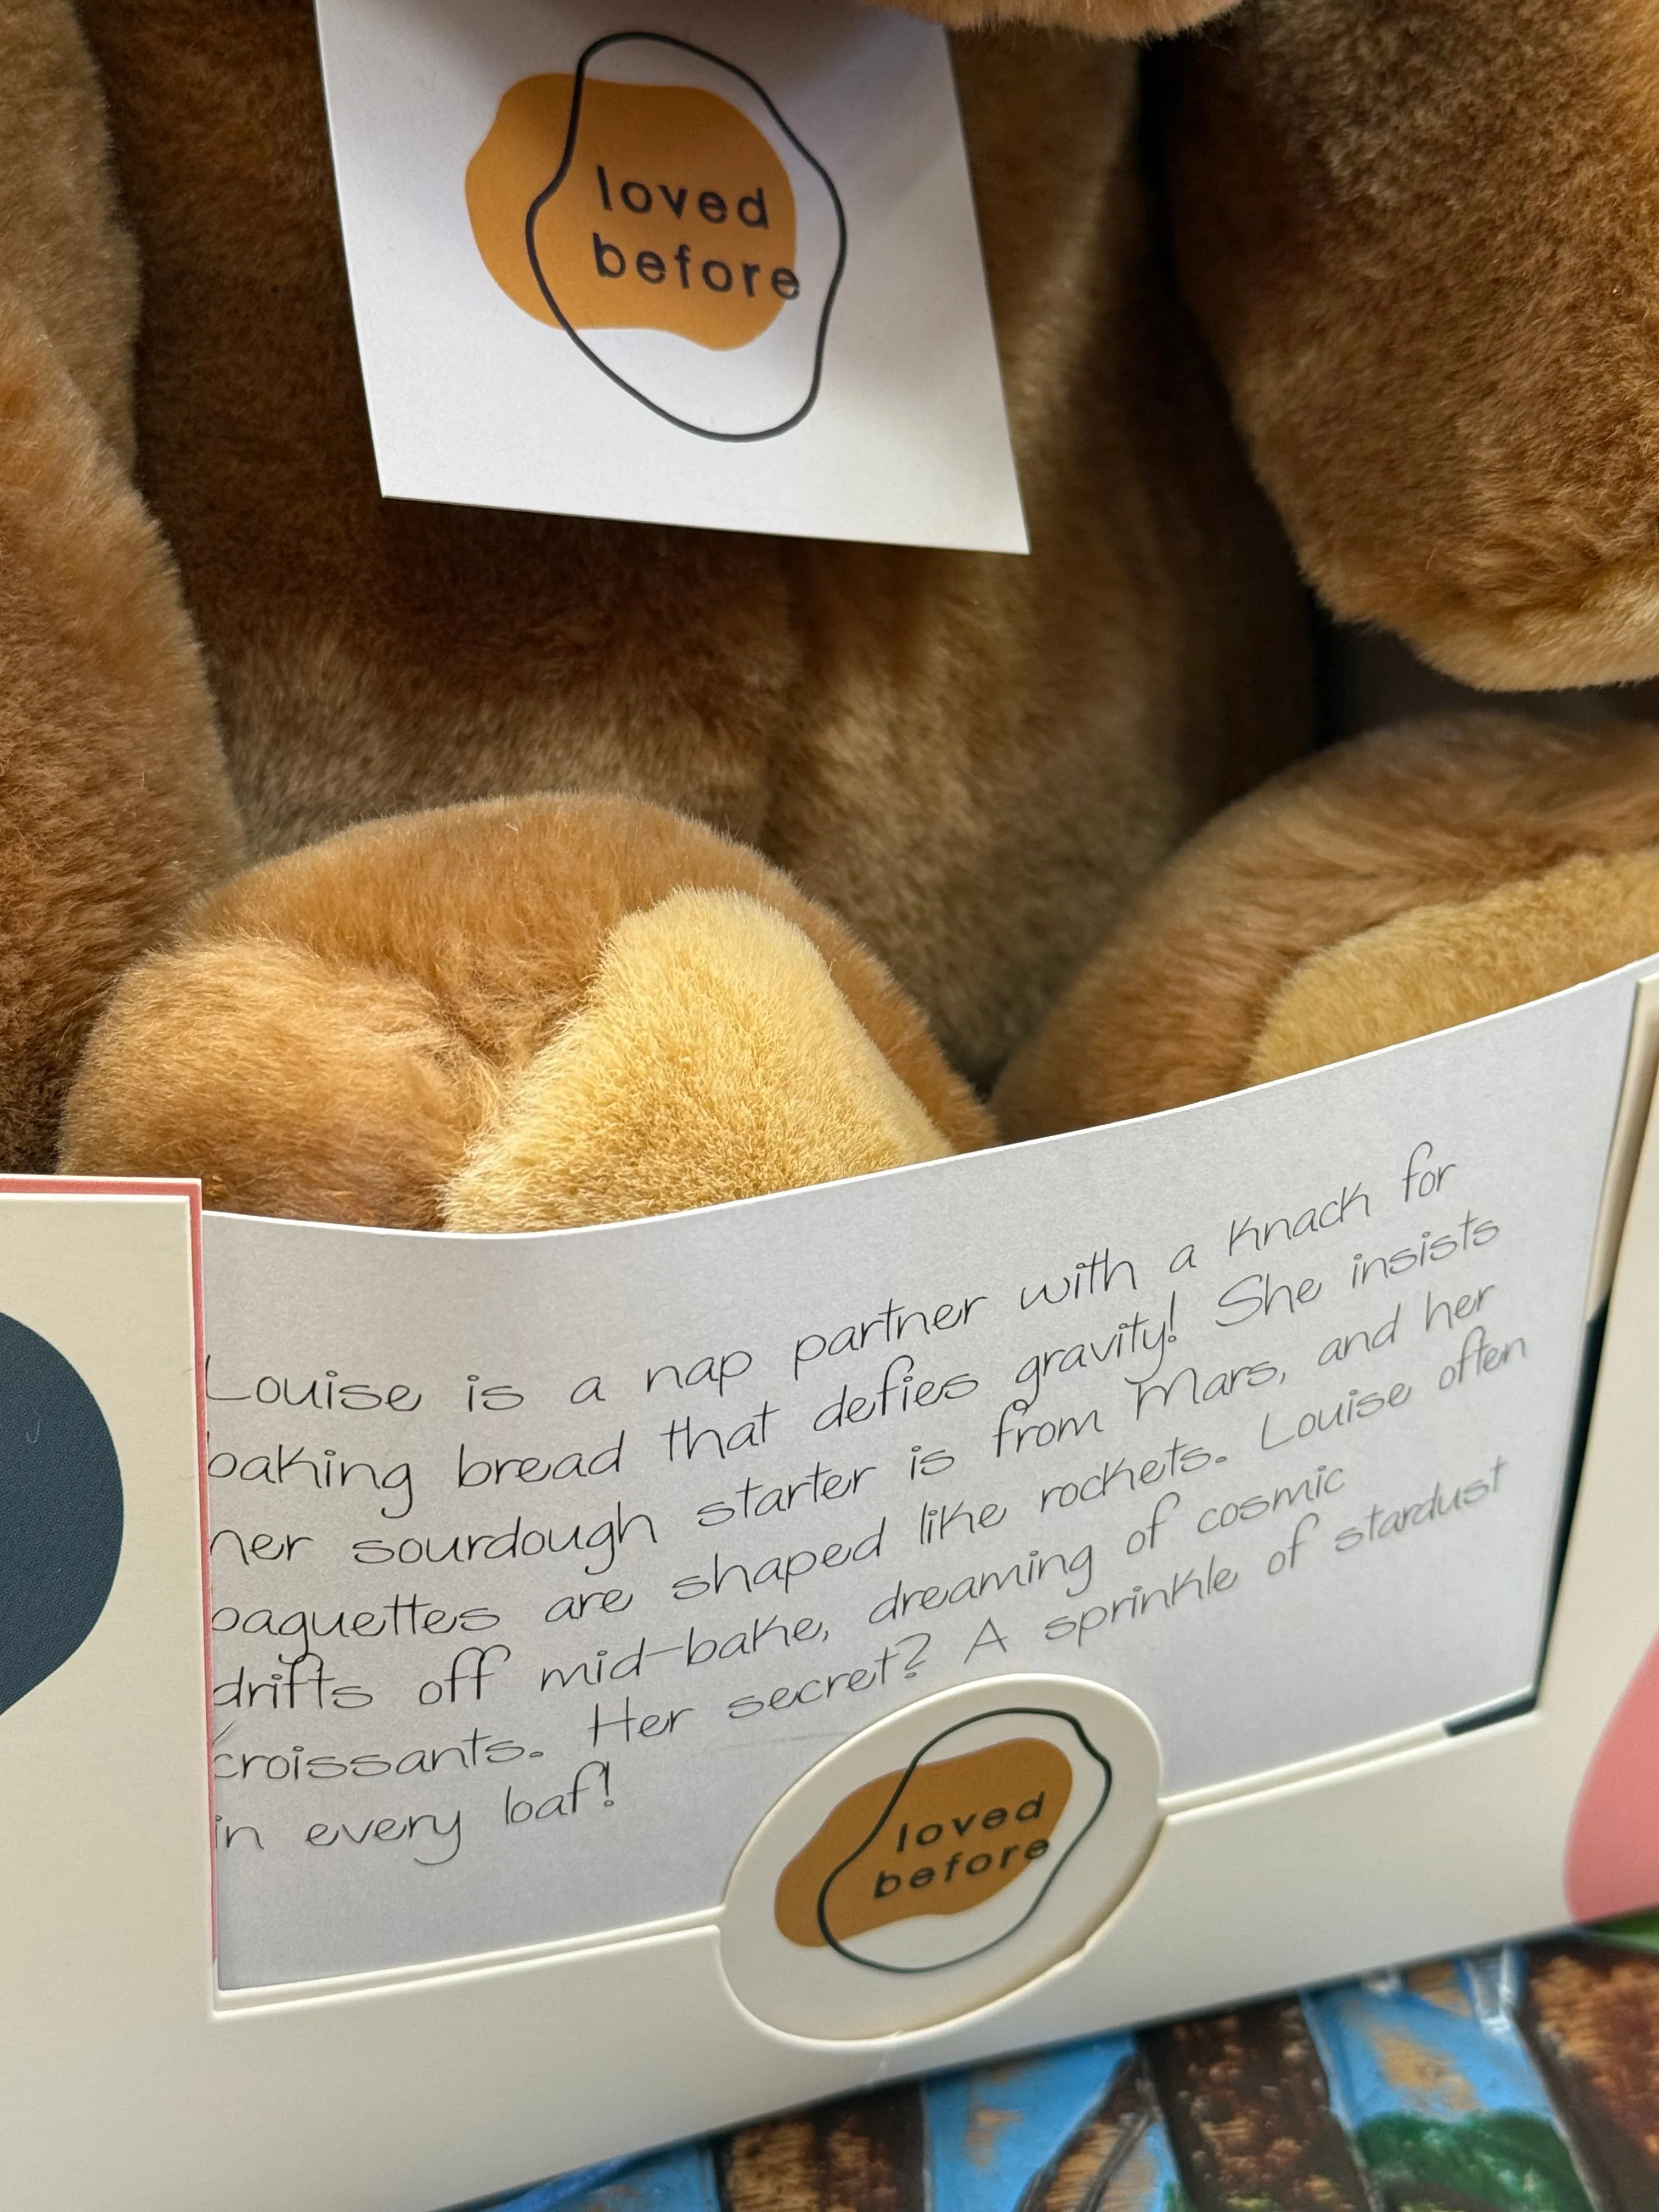 loved
before
Louise is a nap partner with a knack for
baking bread that defies gravity! She insists
her sourdough starter is from Mars, and her
baguettes are shaped like rockets. Louise often
drifts off mid-bake, dreaming of cosmic
croissants. Her secret? A sprinkle of stardust
in every loaf!
loved
before